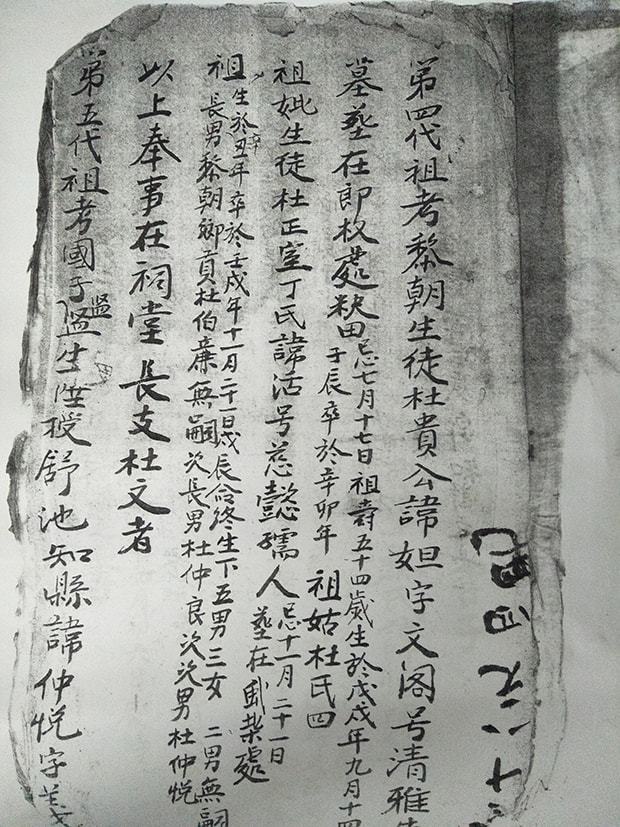 第四代祖考黎朝生徒杜貴公諱妲字文阁号清雅
墓塟在即权處秋田忌七月十七日祖壽五十四歲生於戊戌年九月十四
于辰卒於辛卯年 祖姑杜氏四
祖妣生徒杜正室丁氏諱活号慈懿孺人忌十一月二十一日
塟在 處
祖生於辛丑年卒於壬戌年十一月二十一日戌辰令終生下五男三女 二男無嗣
長男黎朝鄉貢杜伯亷無嗣次長男杜仲良次次男杜仲悅
以上奉事在祠堂長支杜文者
第五代祖考國子監生陞授舒池知縣諱仲悅字